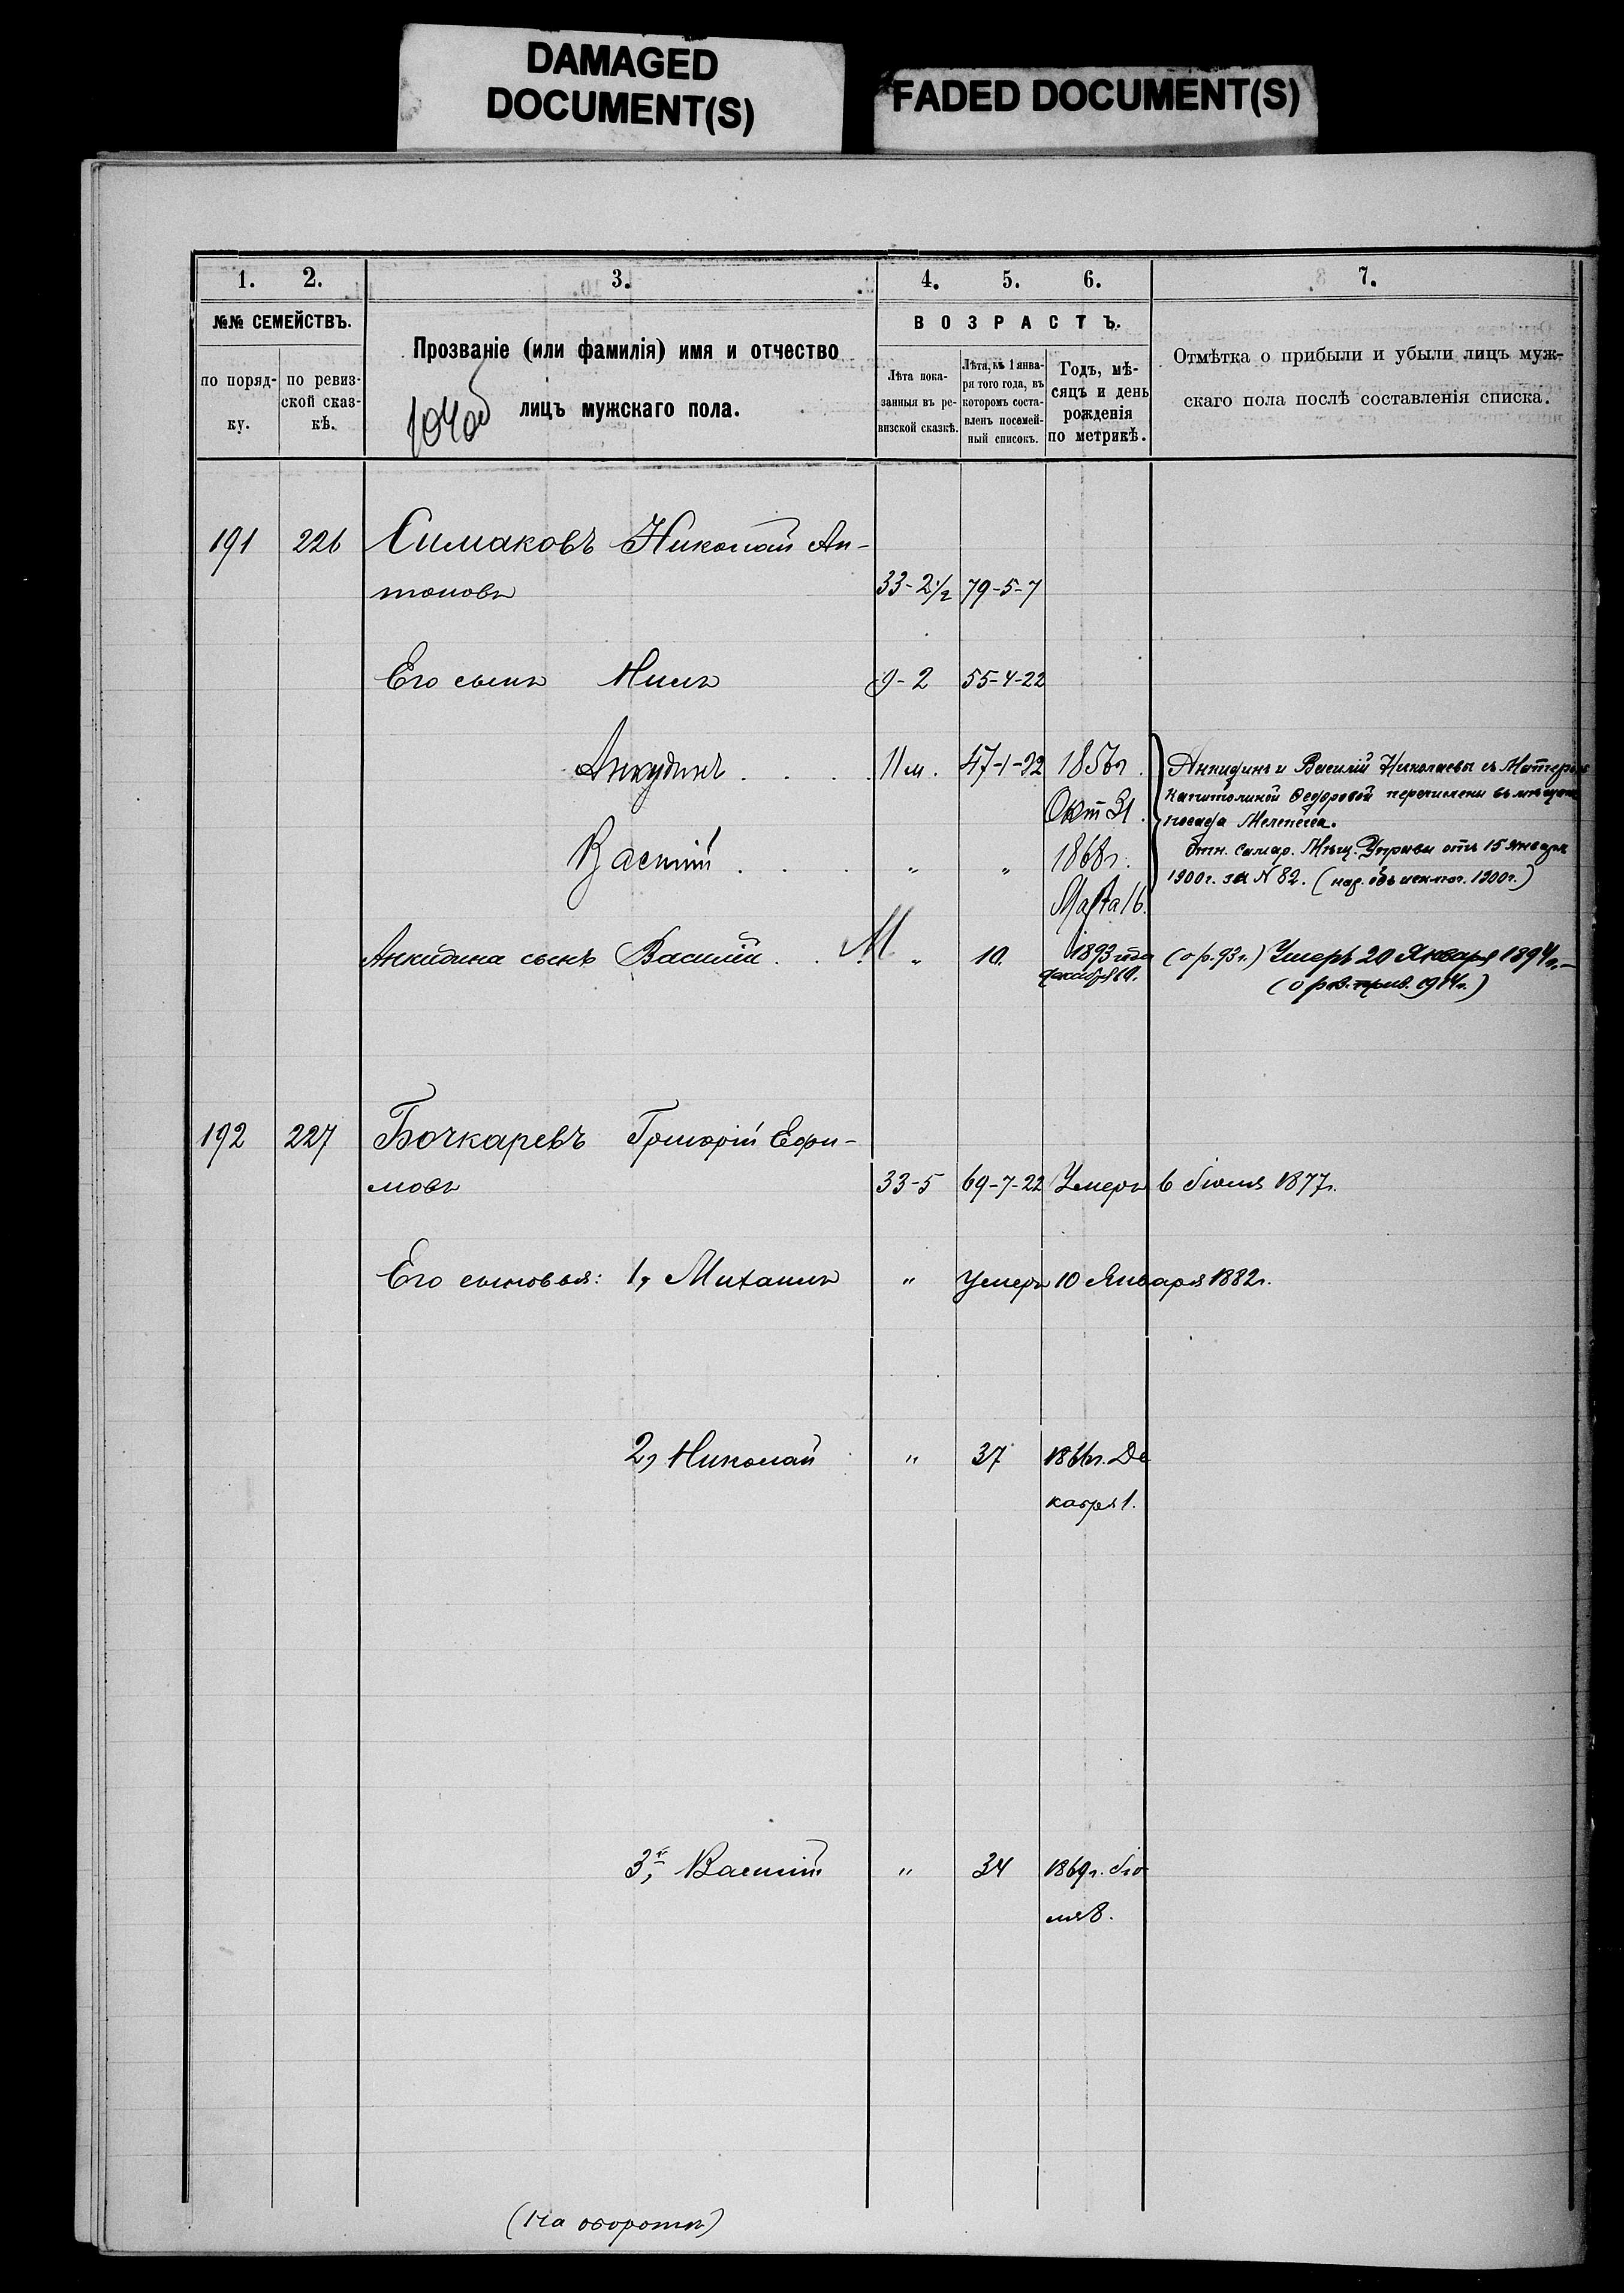 DAMAGED
DOCUMENT(S)
FADED DOCUMENT(S)
1. 2. 3. 4. 5. 6. 7.
№№ СЕМЕЙСТВЪ.
по поряд-
ку.
по ревиз-
ской сказ-
кѣ.
Прозваніе (или фамилія) имя и отчество
лицъ мужскаго пола.
ВОЗРАСТЪ.
Лѣта пока-
занныя въ ре-
визской сказкѣ.
Лѣта, къ 1 янва-
ря того года, въ
которомъ соста-
вленъ посемей-
ный списокъ.
Годъ, мѣ-
сяцъ и день
рожденія
по метрикѣ.
Отмѣтка о прибыли и убыли лицъ муж-
скаго пола послѣ составленія списка.
191 226 Симаковъ Николай Ан-
тоновъ 33-2½ 79-5-7
Его сынъ Нилъ 9-2 55-4-22
Анкудинъ 11 м. 47-1-22 1856г.
Окт 31.
Анкидинъ и Василій Николаевы съ Матерью
Капитолиной Федоровой перечислены въ мещане
посада Мелекеса.
Василій " " 1868г.
Марта 16.
Отн. Самар. Мѣщ. Управы отъ 15 января
1900г. за N 82. (нар. объ исключ. 1900г.)
Анкидина сынъ Василій М " 10. 1893 года
декабря (о р. 93г.) Умеръ 20 Января 1894г.
192 227 Бочкаревъ Григорій Ефи-
мовъ 33-5 69-7-22 Умеръ 6 Іюня 1877г.
Его сыновья: 1, Михаилъ " Умеръ 10 Января 1882г.
2, Николай " 37 1866г. Де
кабря 1.
3, Василій " 34 1869г. Ію
ля 8.
(На оборотѣ)